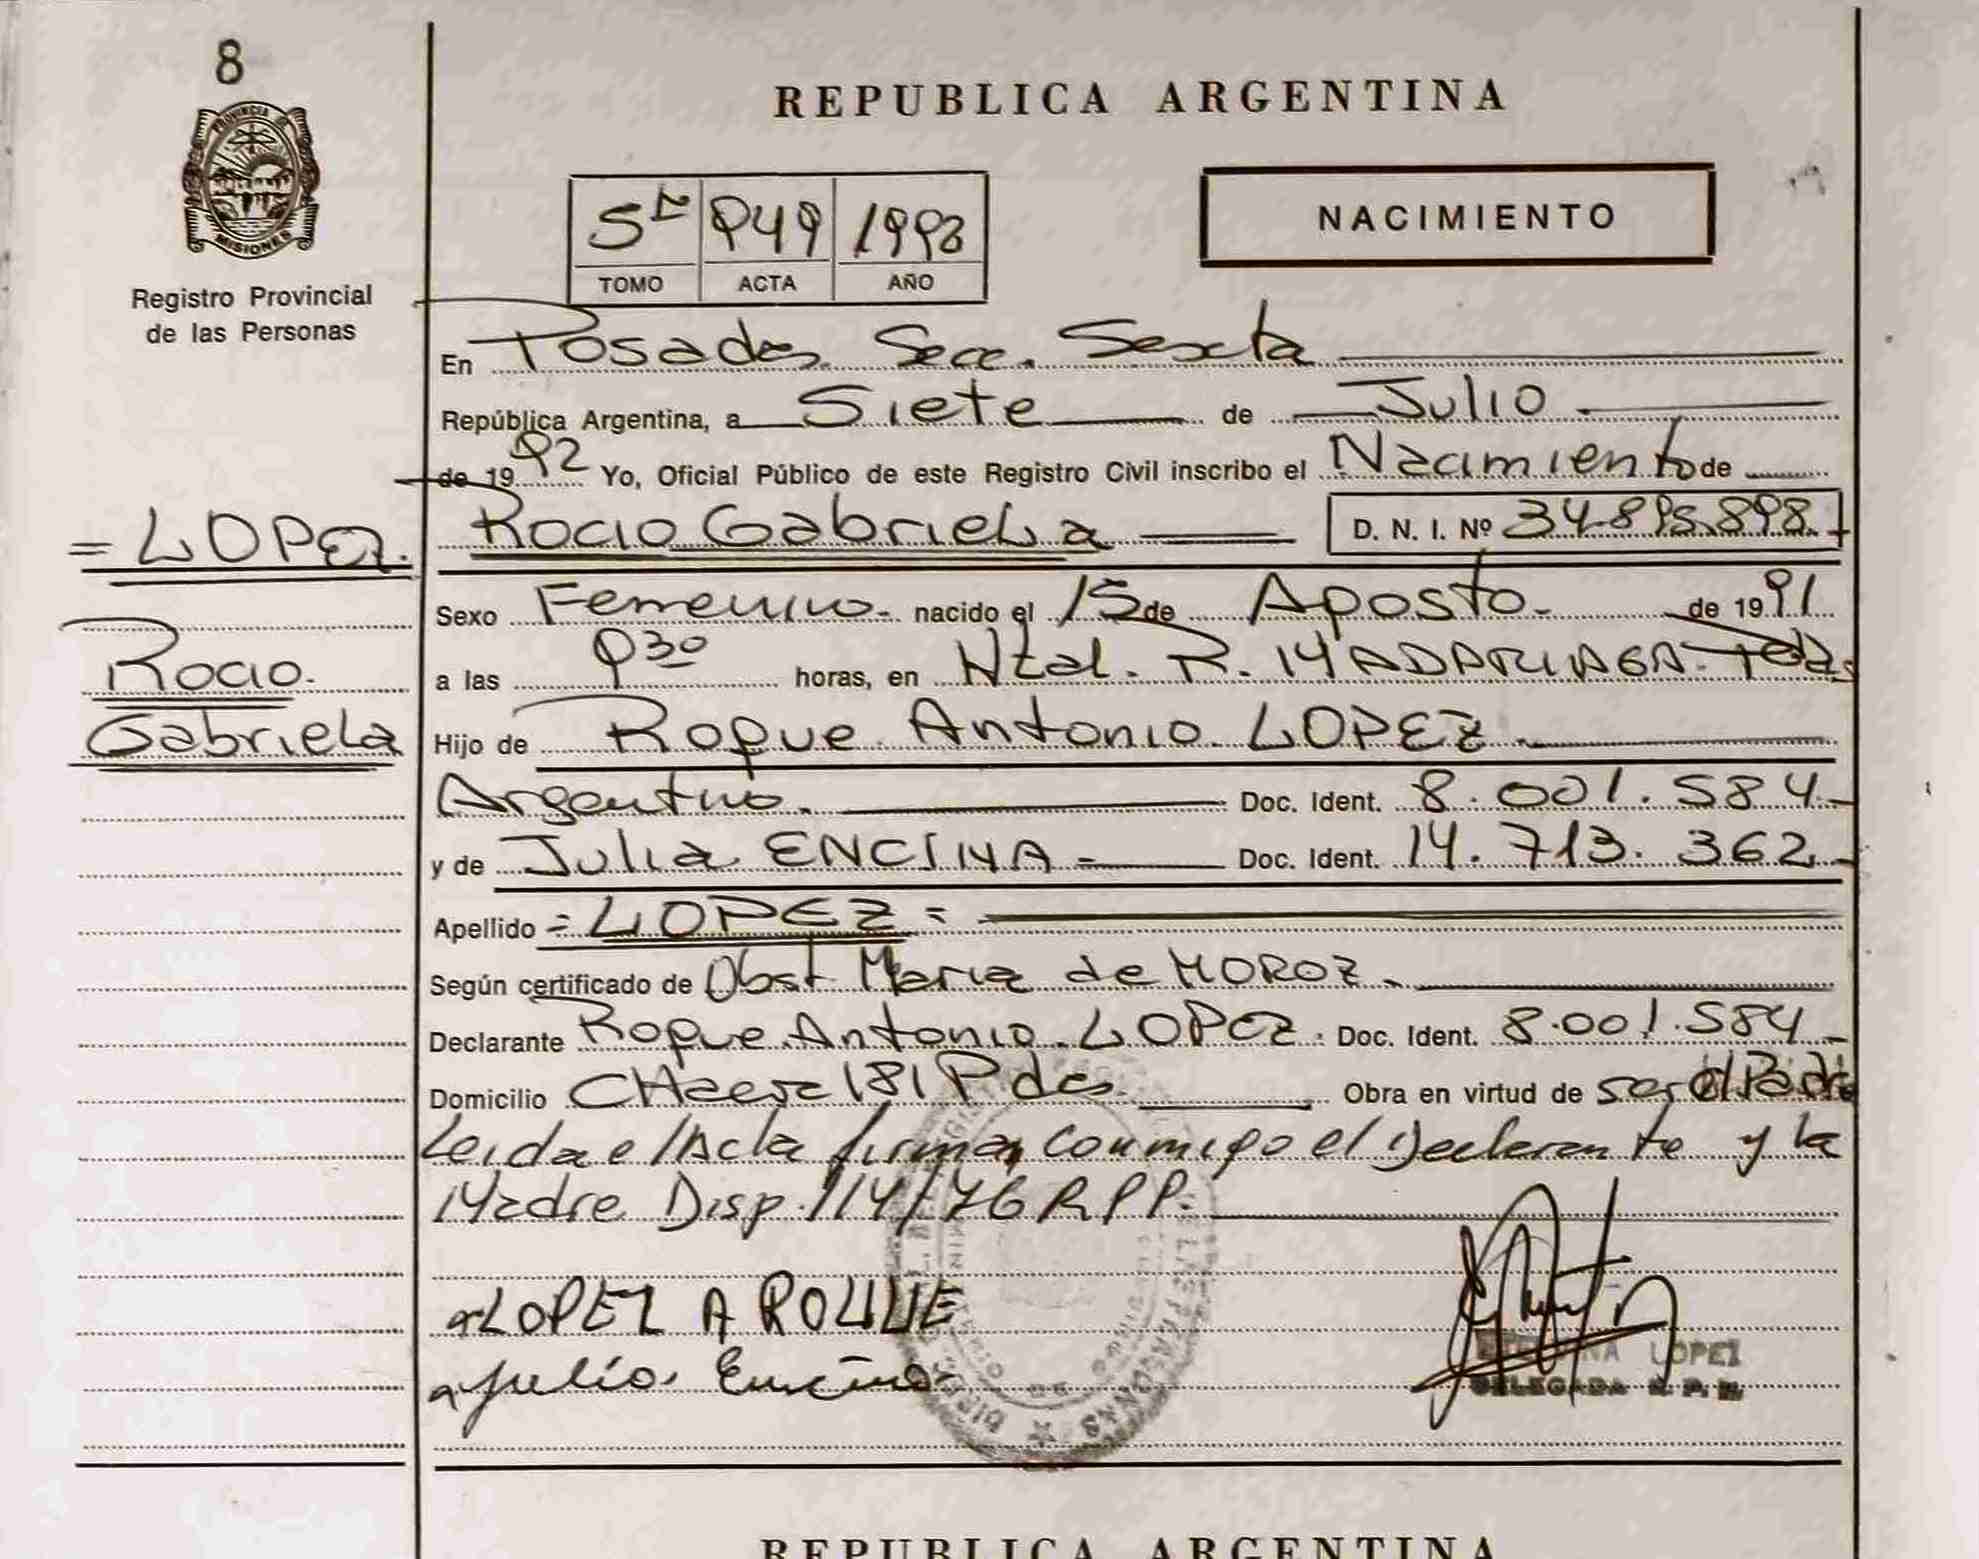 8
REPUBLICA ARGENTINA
PROVINCIA
MISIONES
Registro Provincial
de las Personas
NACIMIENTO
949
TOMO ACTA AÑO
En Posadas. Secc. Sexta
República Argentina, a Siete de Julio
de 1992 Yo, Oficial Público de este Registro Civil inscribo el Nacimiento de
= LOPEZ.
Rocio Gabriela D. N. I. Nº 34.895.898.
Sexo Femenino. nacido el 15 de Agosto. de 1991
Rocio.
Gabriela
a las 930 horas, en Ntal. R. MADARIAGA. Pdas
Hijo de Roque Antonio LOPEZ.
Argentino. Doc. Ident. 8.001.584
y de Julia ENCINA Doc. Ident. 14.713.362
Apellido = LOPEZ =
Según certificado de Obst Maria de MOROZ.
Declarante Roque Antonio LOPEZ. Doc. Ident. 8.001.584
Domicilio CHacra 181 Pdas Obra en virtud de ser el Padre
Leida el Acta firman conmigo el Declarante y la
Madre Disp. 114/76 RPP.
LOPEZ A ROQUE
LOPEZ
DELEGADA
REPUBLICA ARGENTINA